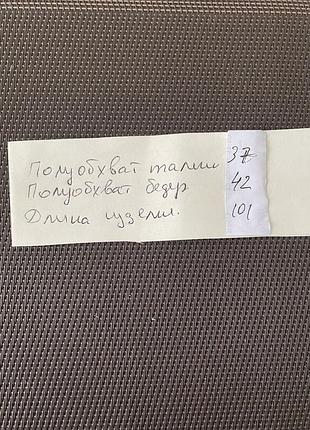 Полуобхват талии 37
Полуобхват бедер 42
Длина изделия. 101